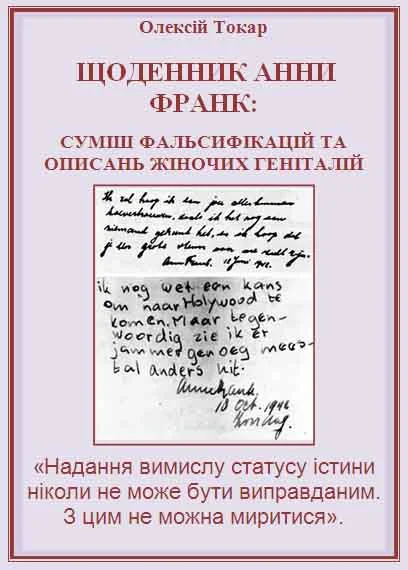 Олексій Токар
ЩОДЕННИК АННИ
ФРАНК:
СУМІШ ФАЛЬСИФІКАЦІЙ ТА
ОПИСАНЬ ЖІНОЧИХ ГЕНІТАЛІЙ
Ik zal hoop ik aan jou alles kunnen
toevertrouwen, zoals ik het nog aan
niemand gekund heb, en ik hoop dat
je een grote steun voor me zult zijn.
Anne Frank. 12 Juni 1942.
ik nog wel een kans
om naar Holywood te
komen. Maar tegen-
woordig zie ik er
jammer genoeg mees-
tal anders uit.
Annefrank.
18 Oct. 1942
Zondag.
«Надання вимислу статусу істини
ніколи не може бути виправданим.
З цим не можна миритися».